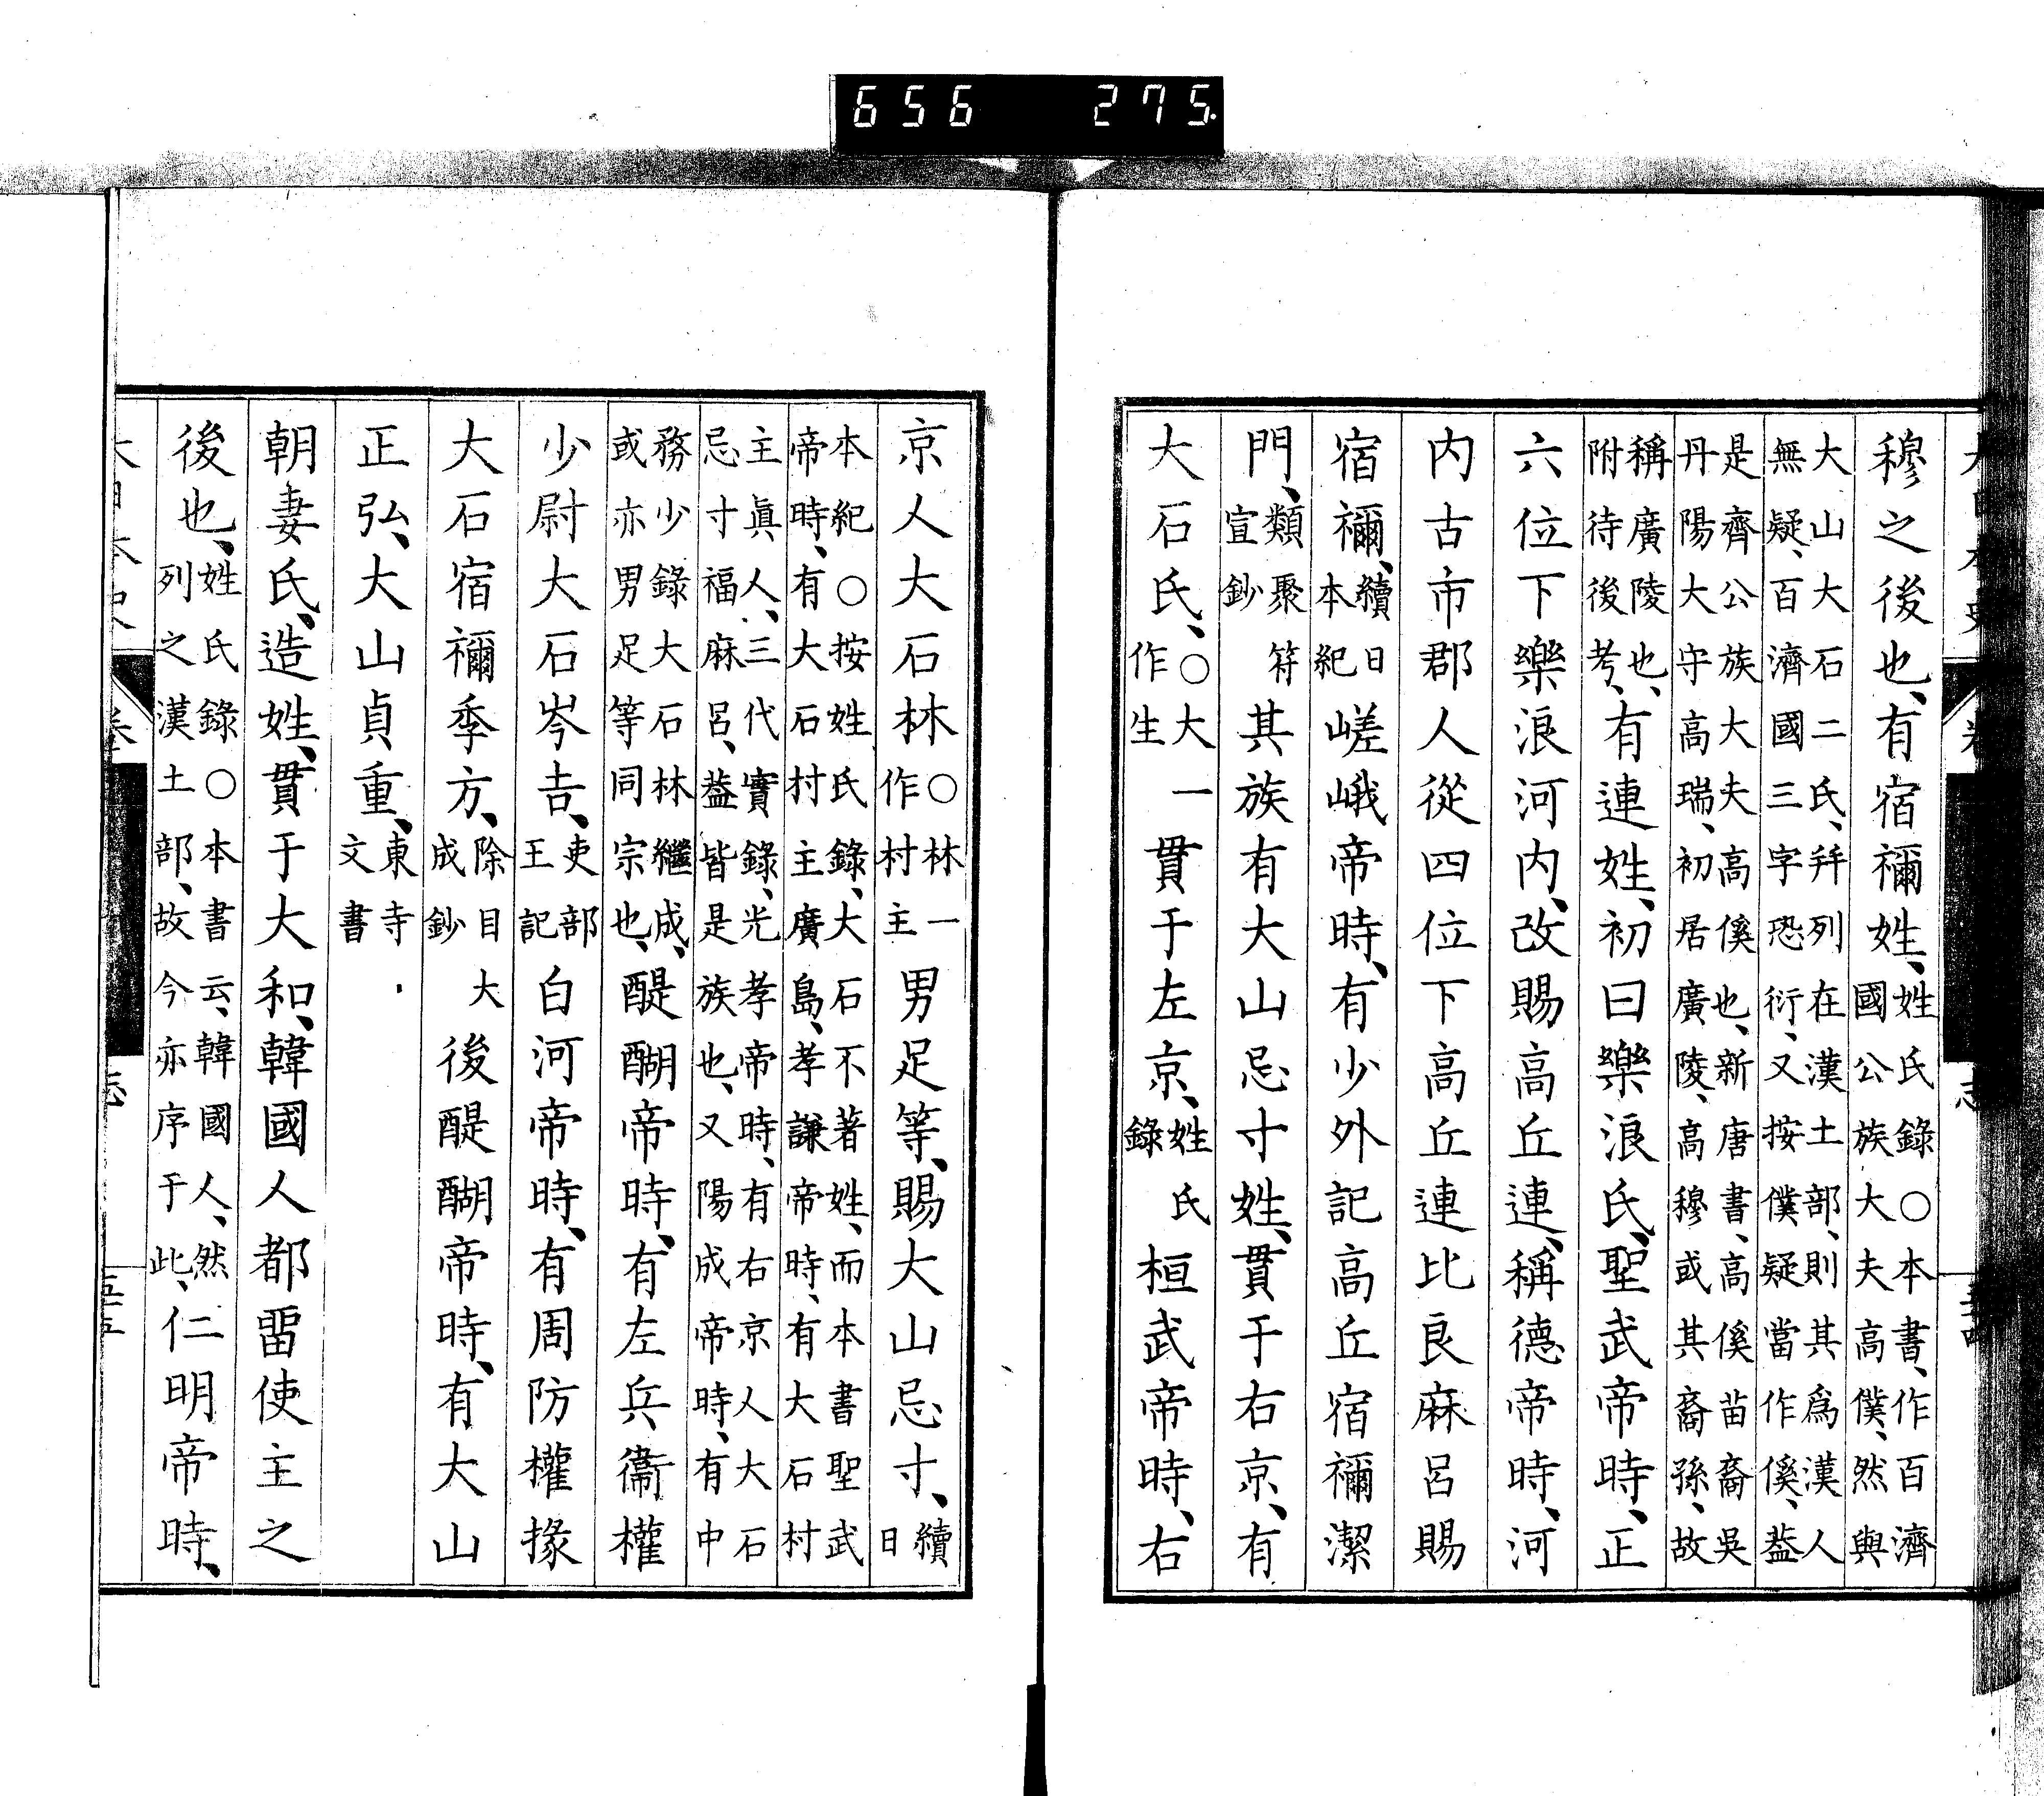 656 275
穆之後也、有宿禰姓、姓氏錄○本書、作百濟國公族大夫高僕、然與
大山大石二氏、幷列在漢土部、則其爲漢人無疑、百濟國三字恐衍、又按僕、疑當作傒、葢
是齊公族大夫高傒也、新唐書、高傒苗裔吳丹陽大守高瑞、初居廣陵、高穆或其裔孫、故
稱廣陵也、附待後考、有連姓、初曰樂浪氏、聖武帝時、正
六位下樂浪河内、改賜高丘連、稱德帝時、河
内古市郡人從四位下高丘連比良麻呂賜
宿禰、續日本紀嵯峨帝時、有少外記高丘宿禰潔
門、類聚符宣鈔其族有大山忌寸姓、貫于右京、有
大石氏、○大一作生貫于左京、姓氏錄桓武帝時、右
京人大石林○林一作村主男足等、賜大山忌寸、續日
本紀○按姓氏錄、大石不著姓、而本書聖武帝時、有大石村主廣島、孝謙帝時、有大石村
主眞人、三代實錄、光孝帝時、有右京人大石忌寸福麻呂、葢皆是族也、又陽成帝時、有中
務少錄大石林繼成、或亦男足等同宗也、醍醐帝時、有左兵衞權
少尉大石岑吉、吏部王記白河帝時、有周防權掾
大石宿禰季方、除目大成鈔後醍醐帝時、有大山
正弘、大山貞重、東寺文書
朝妻氏、造姓、貫于大和、韓國人都留使主之
後也、姓氏錄○本書云、韓國人、然列之漢土部、故今亦序于此、仁明帝時、
志
五十五